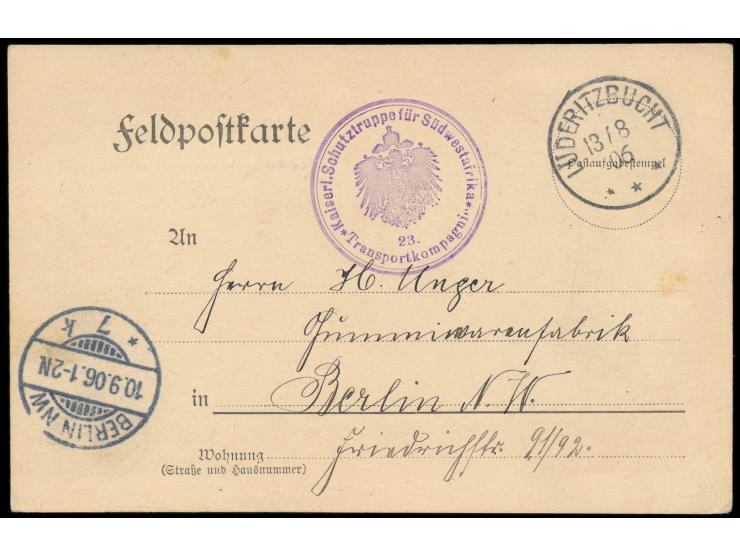 Feldpostkarte
Kaiserl. Schutztruppe für Südwestafrika
23.
* Transportkompagnie *
LÜDERITZBUCHT
13/8
06
* * *
Postaufgabestempel
An
Herrn H. Unger
Gummiwarenfabrik
in Berlin N.W.
Wohnung Friedrichstr. 91/92.
(Straße und Hausnummer)
BERLIN NW
10.9.06.1-2N.
* 7 k